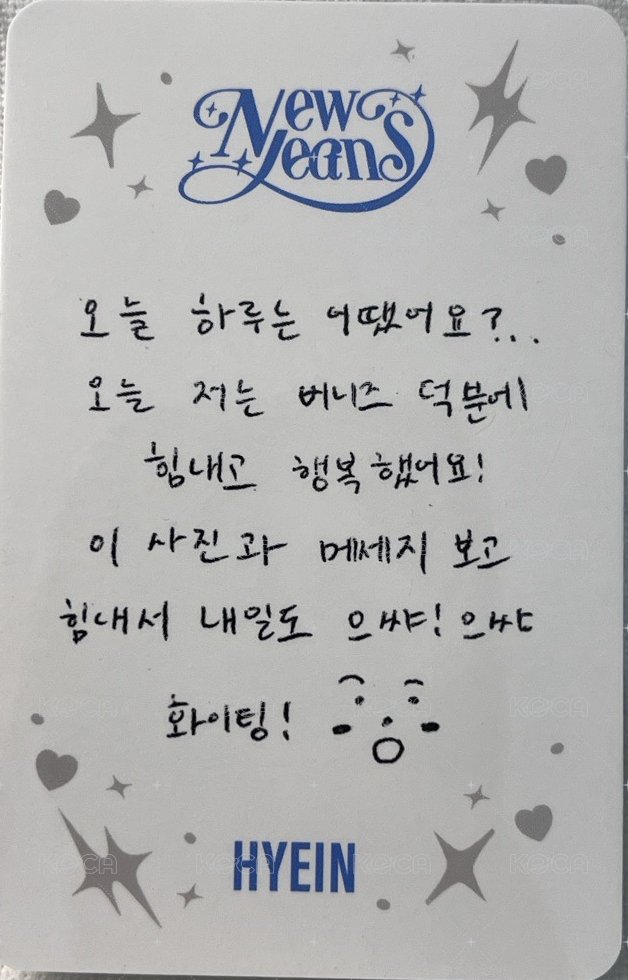 New
Jeans
오늘 하루는 어땠어요?...
오늘 저는 버니즈 덕분에
힘내고 행복했어요!
이 사진과 메세지 보고
힘내서 내일도 으쌰! 으쌰
화이팅!
HYEIN
KOCA KOCA KOCA KOCA